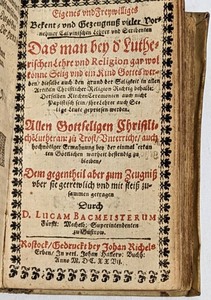 Eigenes und Freywilliges
Bekent- und Gezeugnuß vieler Vor-
nehmer Calvinischen Lehrer und Scribenten
Das man bey der Luthe-
rischen Lehre und Religion gar wol
könne Selig und ein Kind Gottes wer-
den/ dieselbe auch den grund der Seligkeit in allen
Artickeln Christlicher Religion Richtig behalte:
Derselben KirchenCeremonien auch nicht
Papistisch sein/ ihre Lehrer auch Se-
lige Leute gepriesen werden.
Allen Gottseligen Christli-
chen zu Trost/ Unterricht/ auch
hochnötiger Ermahnung bey der einmal erkan-
ten Göttlichen warheit bestendig zu
bleiben/
Dem gegentheil aber zum Zeugniß
uber sie getrewlich und mit fleiß zu-
sammen getragen
Durch
D. LUCAM BACMEISTERUM
Fürstl: Superintendenten
zu Güstrow.
Rostock/ Gedruckt bey Johan Richels
Erben/ In verl. Johan Hallerv. Buchh:
Anno M. DC. XXVII.